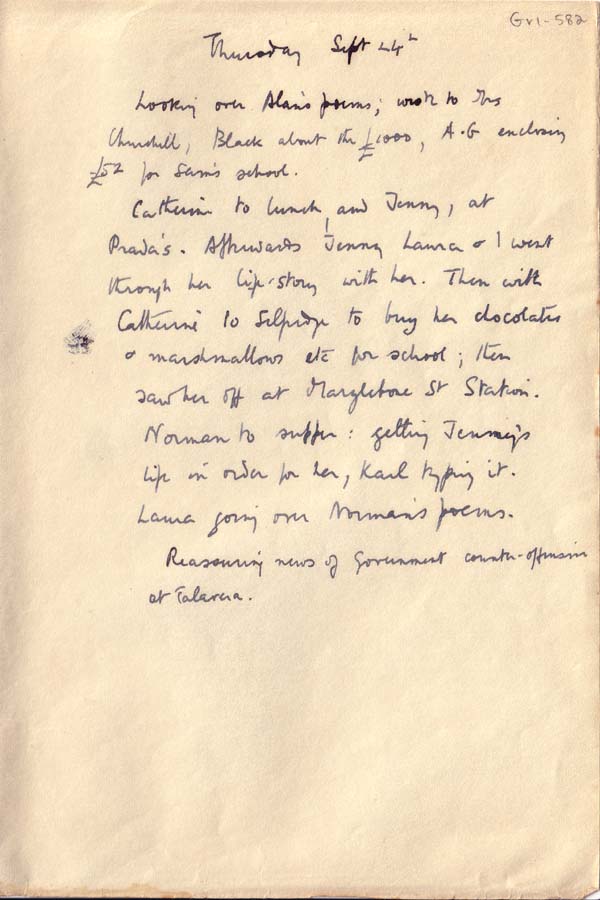 Gr1-582
Thursday Sept 24th
Looking over Alan's poems; wrote to Mrs
Churchill, Black about the £1000, A.G enclosing
£52 for Sam's school.
Catherine to lunch, and Jenny, at
Prada's. Afterwards Jenny Laura & I went
through her life-story with her. Then with
Catherine to Selfridge to buy her chocolates
& marshmallows etc for school; then
saw her off at Marylebone St Station.
Norman to supper: getting Jenny's
life in order for her, Karl typing it.
Laura going over Norman's poems.
Reassuring news of Government counter-offensive
at Talavera.